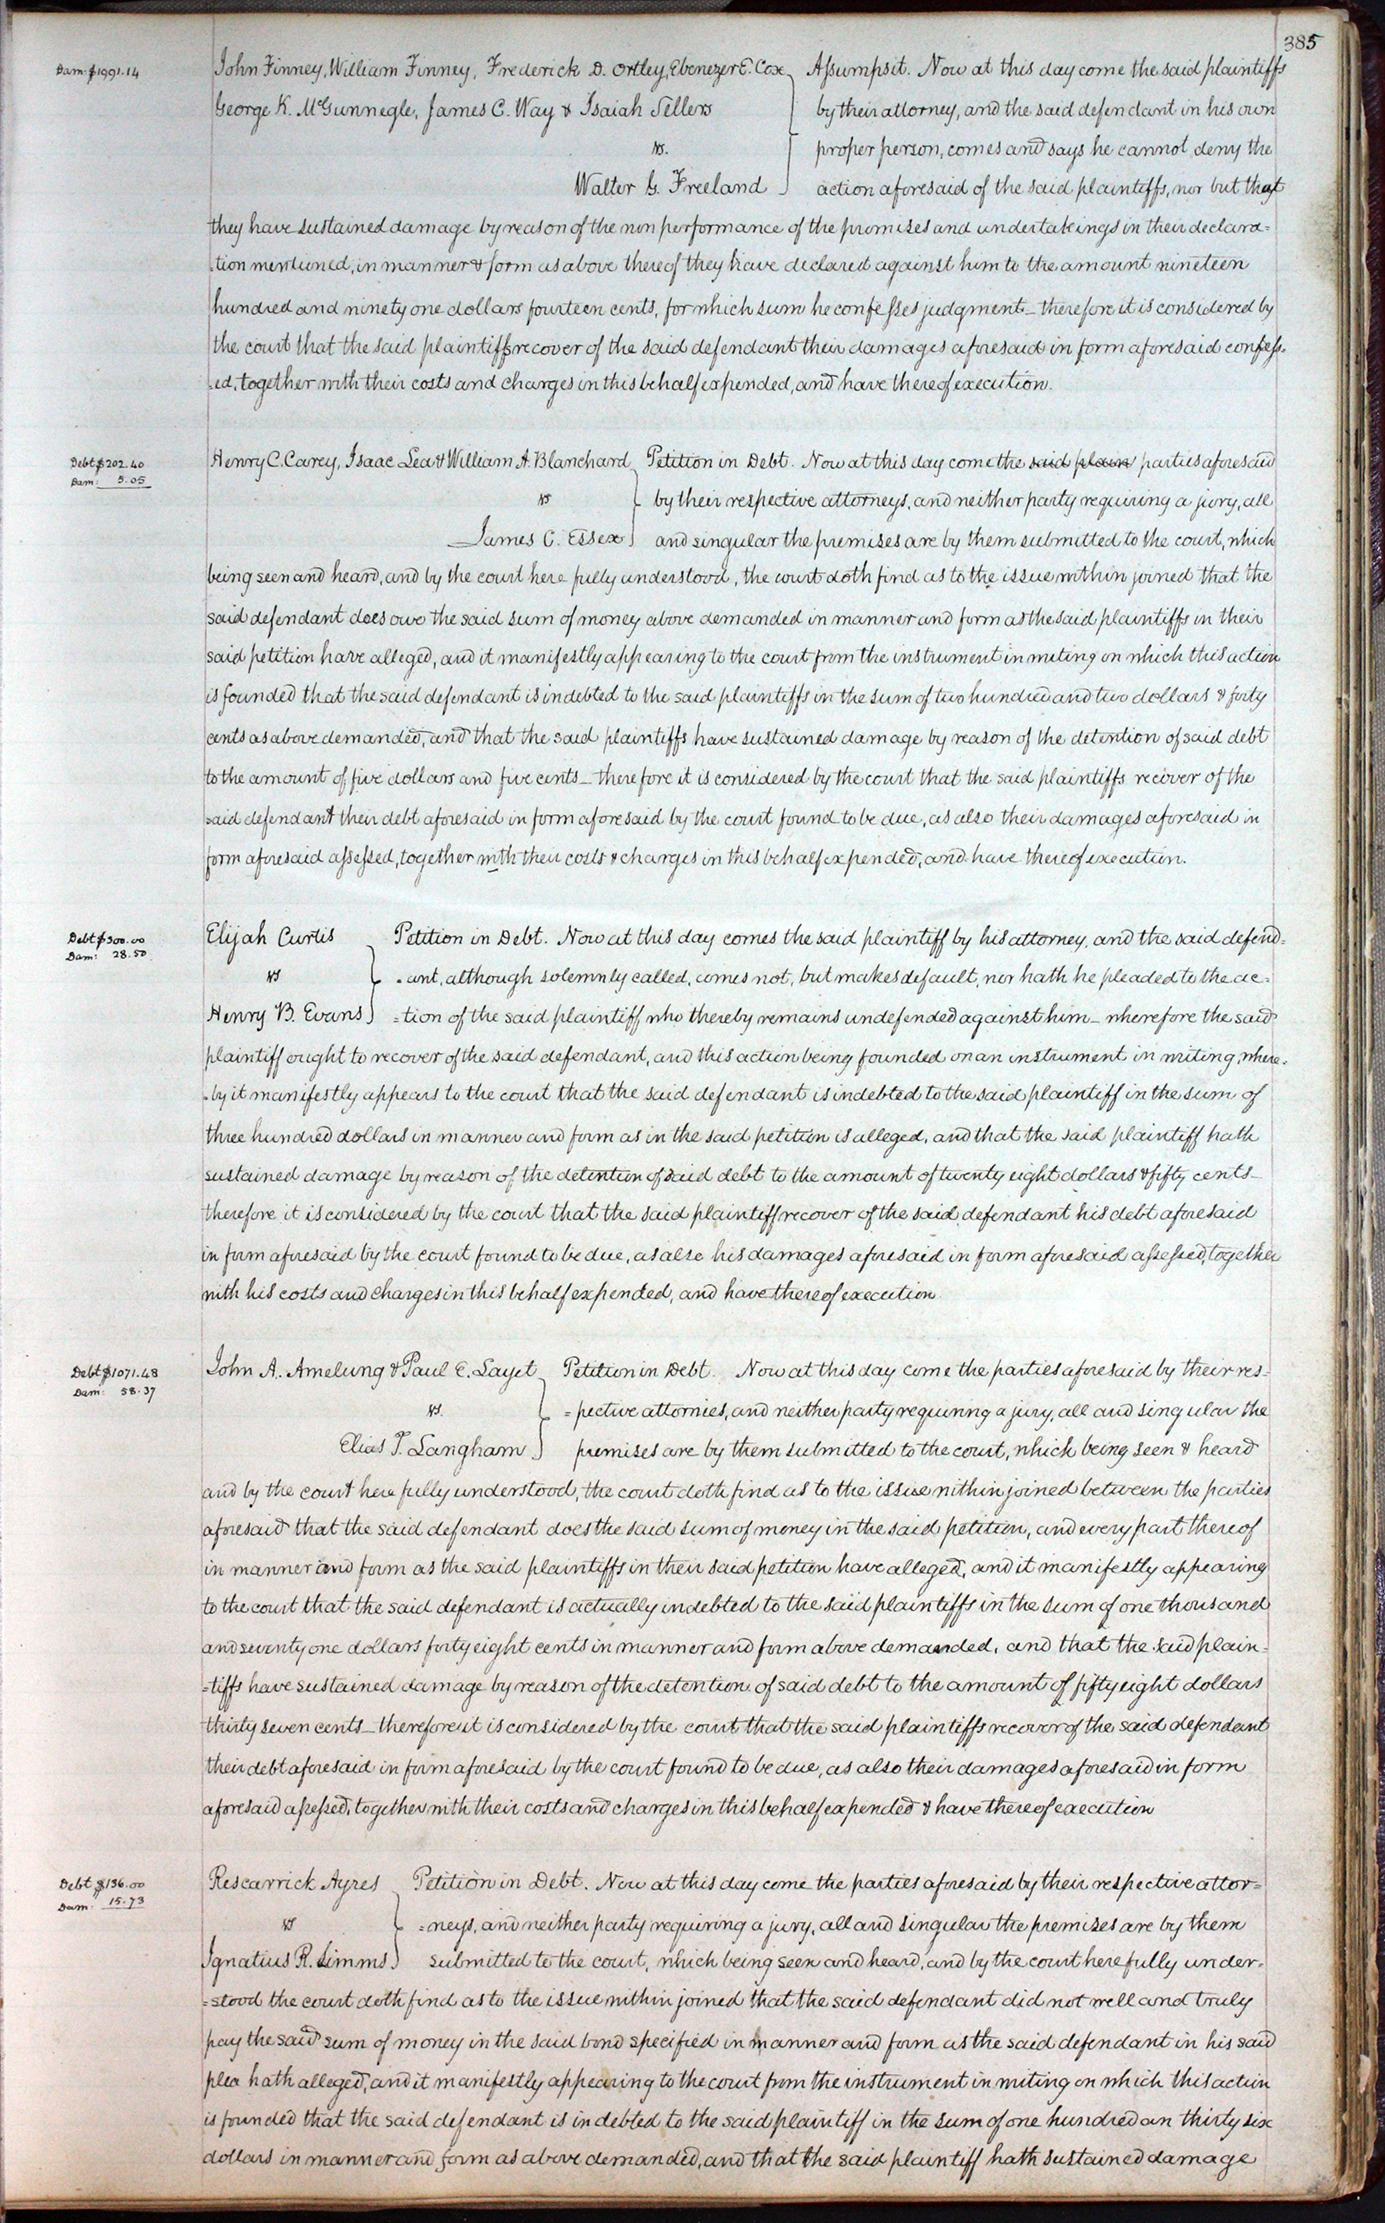 385
Dam: $1991.14
John Finney, William Finney, Frederick D. Ortley, Ebenezer E. Cox
George K. McGunnegle, James C. Way & Isaiah Sellers
vs.
Walter G. Freeland
Assumpsit. Now at this day come the said plaintiffs
by their attorney, and the said defendant in his own
proper person, comes and says he cannot deny the
action aforesaid of the said plaintiffs, nor but that
they have sustained damage by reason of the non performance of the promises and undertakings in their declara=
tion mentioned, in manner & form as above thereof they have declared against him to the amount nineteen
hundred and ninety one dollars fourteen cents, for which sum he confesses judgment_ therefore it is considered by
the court that the said plaintiffs recover of the said defendant their damages aforesaid in form aforesaid confess=
ed, together with their costs and charges in this behalf expended, and have thereof execution.
Debt $202.40
Dam: 5.05
Henry C. Carey, Isaac Lea & William A. Blanchard
vs
James C. Essex
Petition in Debt. Now at this day come the said plain parties aforesaid
by their respective attorneys, and neither party requiring a jury, all
and singular the premises are by them submitted to the court, which
being seen and heard, and by the court here fully understood, the court doth find as to the issue within joined that the
said defendant does owe the said sum of money above demanded in manner and form as the said plaintiffs in their
said petition have alleged, and it manifestly appearing to the court from the instrument in writing on which this action
is founded that the said defendant is indebted to the said plaintiffs in the sum of two hundred and two dollars & forty
cents as above demanded, and that the said plaintiffs have sustained damage by reason of the detention of said debt
to the amount of five dollars and five cents_ therefore it is considered by the court that the said plaintiffs recover of the
said defendant their debt aforesaid in form aforesaid by the court found to be due, as also their damages aforesaid in
form aforesaid assessed, together with their costs & charges in this behalf expended, and have thereof execution.
Debt $300.00
Dam: 28.50
Elijah Curtis
vs
Henry B. Evans
Petition in Debt. Now at this day comes the said plaintiff by his attorney, and the said defend=
ant, although solemnly called, comes not, but makes default, nor hath he pleaded to the ac=
=tion of the said plaintiff who thereby remains undefended against him_ wherefore the said
plaintiff ought to recover of the said defendant, and this action being founded on an instrument in writing, where=
by it manifestly appears to the court that the said defendant is indebted to the said plaintiff in the sum of
three hundred dollars in manner and form as in the said petition is alleged, and that the said plaintiff hath
sustained damage by reason of the detention of said debt to the amount of twenty eight dollars & fifty cents_
therefore it is considered by the court that the said plaintiff recover of the said defendant his debt aforesaid
in form aforesaid by the court found to be due, as also his damages aforesaid in form aforesaid assessed, together
with his costs and charges in this behalf expended, and have thereof execution
Debt $1071.48
Dam: 58.37
John A. Amelung & Paul E. Layet
vs.
Elias T. Langham
Petition in Debt. Now at this day come the parties aforesaid by their res=
=pective attornies, and neither party requiring a jury, all and singular the
premises are by them submitted to the court, which being seen & heard
and by the court here fully understood, the court doth find as to the issue within joined between the parties
aforesaid that the said defendant does the said sum of money in the said petition, and every part thereof
in manner and form as the said plaintiffs in their said petition have alleged, and it manifestly appearing
to the court that the said defendant is actually indebted to the said plaintiffs in the sum of one thousand
and seventy one dollars forty eight cents in manner and form above demanded, and that the said plain=
=tiffs have sustained damage by reason of the detention of said debt to the amount of fifty eight dollars
thirty seven cents_ therefore it is considered by the court that the said plaintiffs recover of the said defendant
their debt aforesaid in form aforesaid by the court found to be due, as also their damages aforesaid in form
aforesaid assessed, together with their costs and charges in this behalf expended & have thereof execution
Debt $136.00
Dam: 15.73
Rescarrick Ayres
vs
Ignatius R. Simms
Petition in Debt. Now at this day come the parties aforesaid by their respective attor=
=neys, and neither party requiring a jury, all and singular the premises are by them
submitted to the court, which being seen and heard, and by the court here fully under=
=stood the court doth find as to the issue within joined that the said defendant did not well and truly
pay the said sum of money in the said bond specified in manner and form as the said defendant in his said
plea hath alleged, and it manifestly appearing to the court from the instrument in writing on which this action
is founded that the said defendant is indebted to the said plaintiff in the sum of one hundred an thirty six
dollars in manner and form as above demanded, and that the said plaintiff hath sustained damage